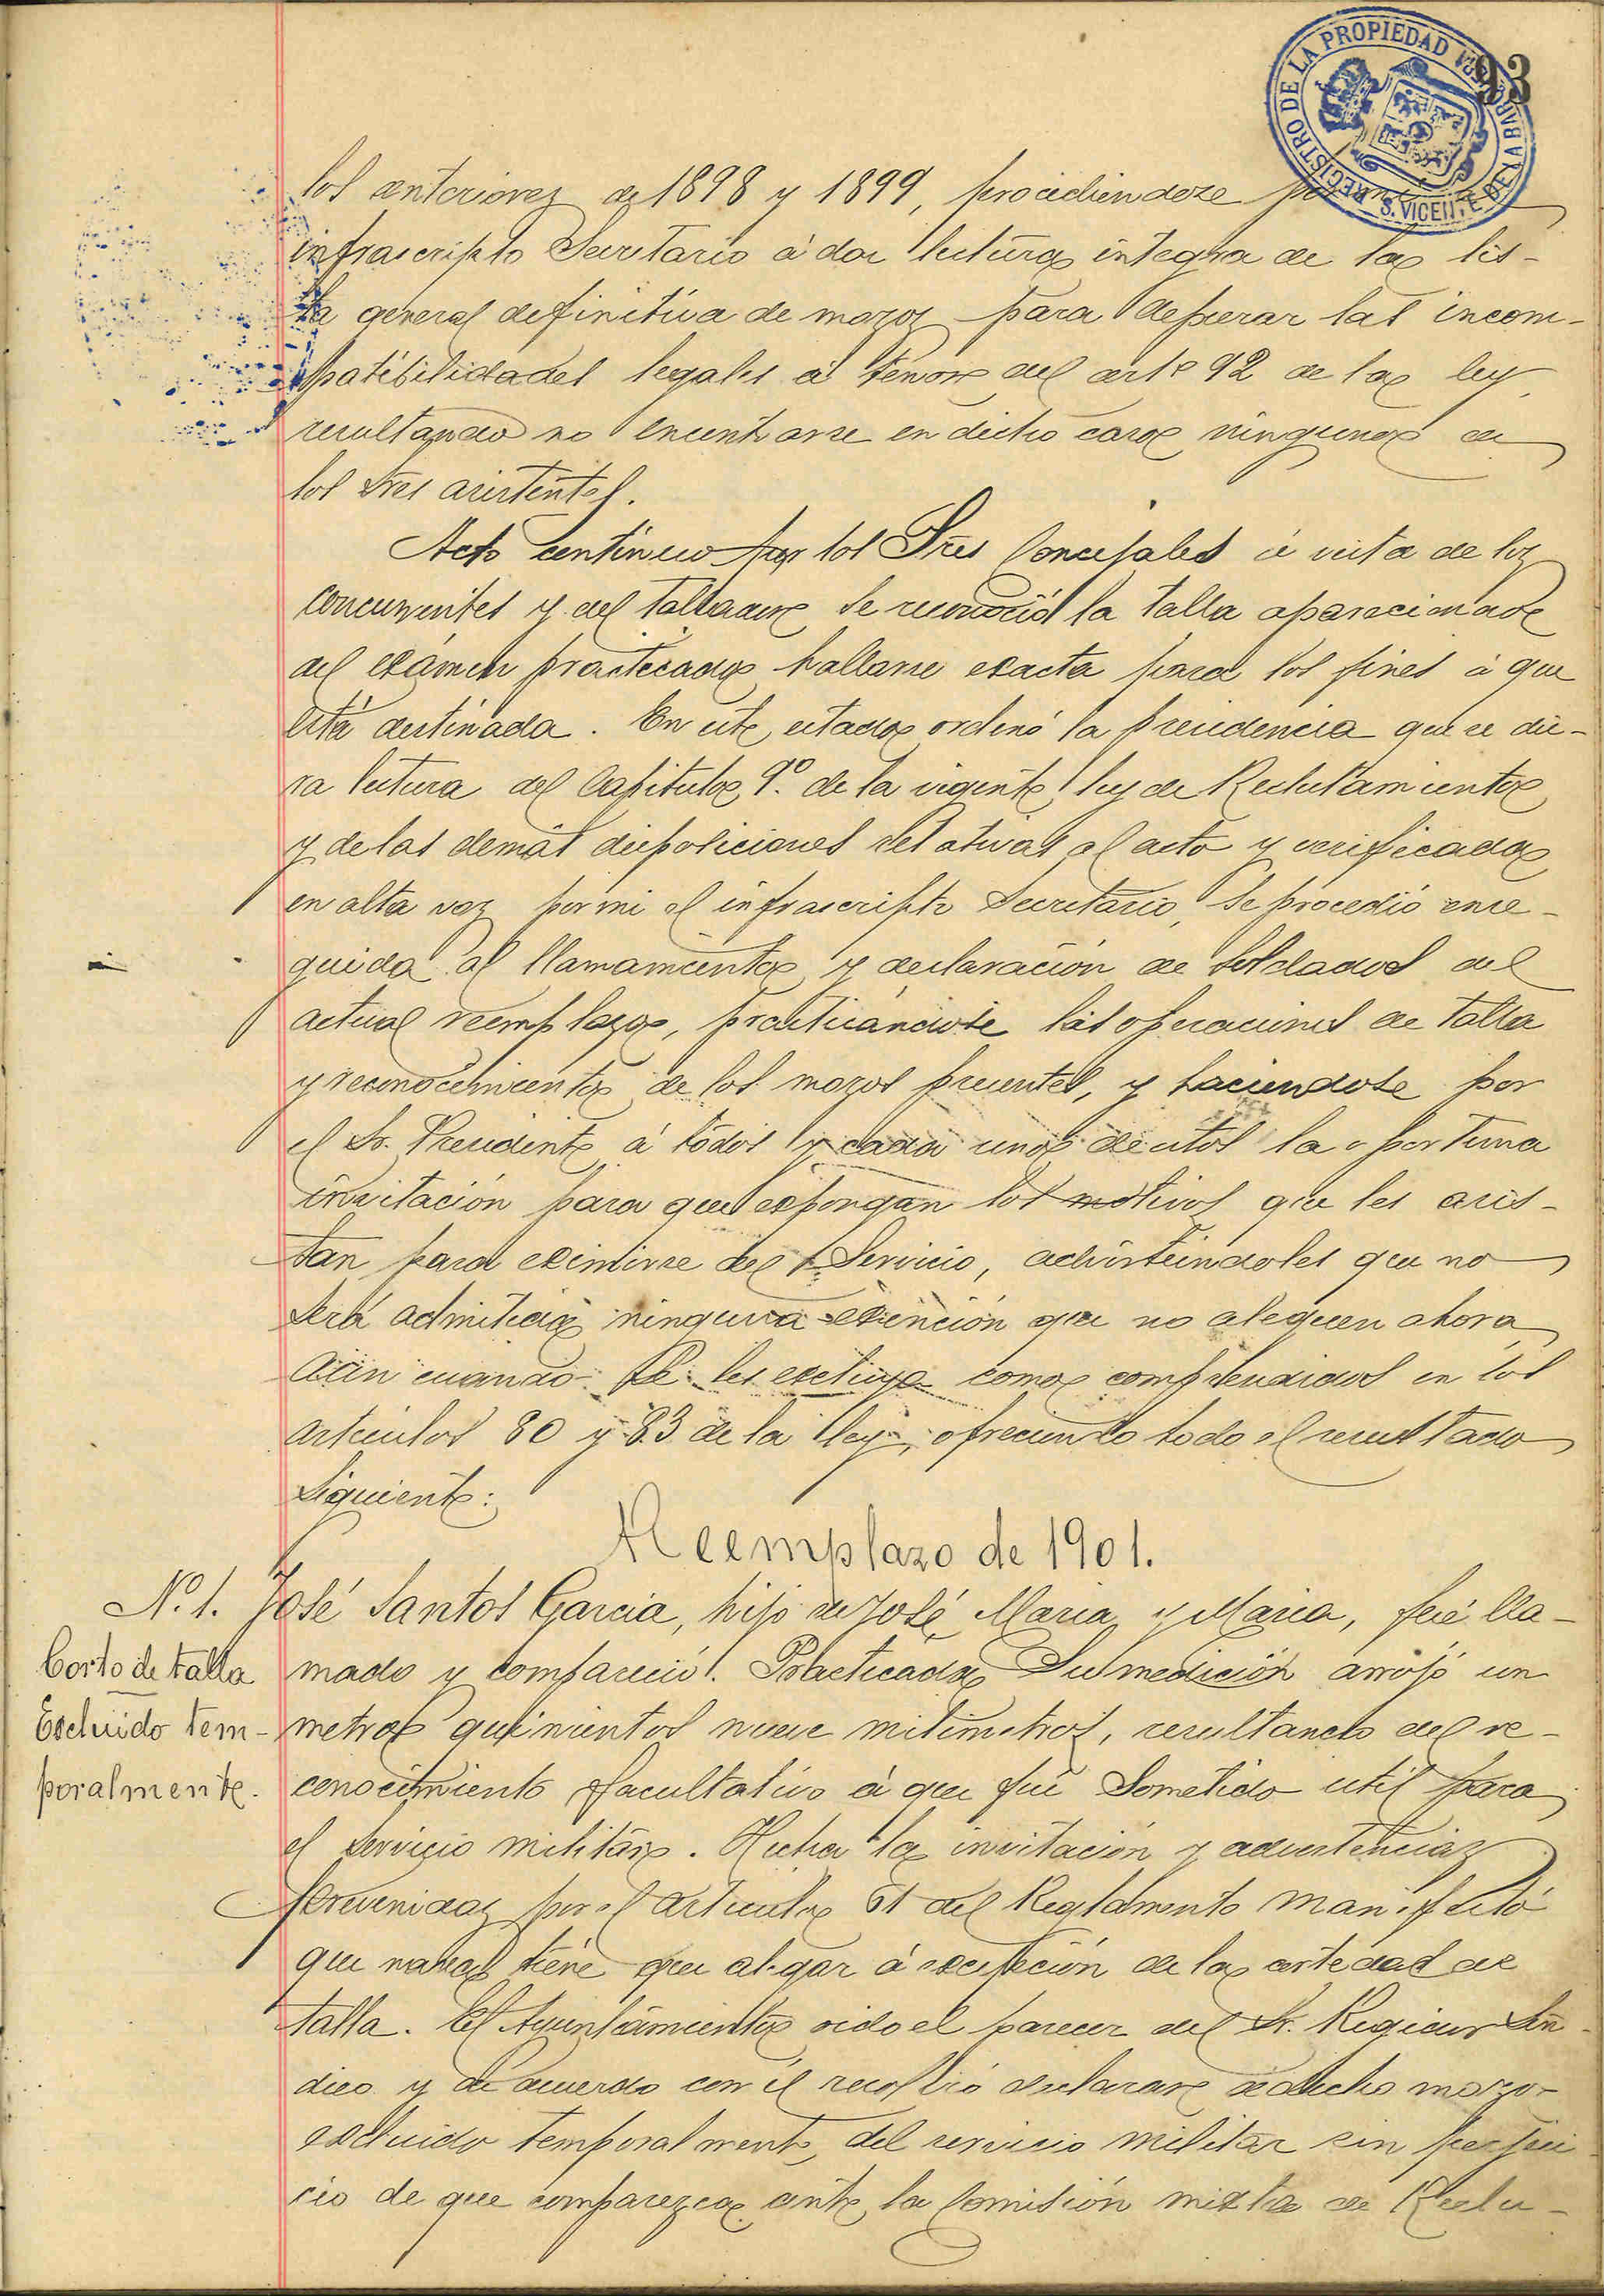 93
REGISTRO DE LA PROPIEDAD
S. VICENTE DE LA BARQUERA
los anteriores de 1898 y 1899, procediendose por
infrascripto Secretario á dar lectura integra de la lis-
ta general definitiva de mozos para depurar las incom-
patibilidades legales á tenor del artº 92 de la ley,
resultando no encontrarse en dicho caso ninguno de
los Sres asistentes.
Acto continuo por los Sres Concejales á vista de los
concurrentes y del tallador se reconoció la talla apareciendo
del exámen practicado hallarse exacta para los fines á que
está destinada. En este estado ordenó la presidencia que se die-
ra lectura del Capitulo 9º. de la vigente ley de Reclutamiento
y de las demás disposiciones relativas al acto y verificado
en alta voz por mi el infrascripto Secretario, se procedió ense-
guida al llamamiento y declaración de Soldados del
actual reemplazo, practicándose las operaciones de talla
y reconocimiento de los mozos presentes, y haciendose por
el Sr. Presidente á todos y cada uno de estos la oportuna
invitación para que expongan los motivos que les asis-
tan para eximirse del Servicio, advirtiéndoles que no
será admitida ninguna exención que no aleguen ahora
aún cuando se les excluya como comprendidos en los
articulos 80 y 83 de la ley, ofreciendo todo el resultado
Siguiente:
Reemplazo de 1901.
Nº. 1. José Santos Garcia, hijo de José Maria y Maria, fué lla-
Corto de talla
Excluido tem-
poralmente.
mado y compareció. Practicada Su medición arrojó un
metro quinientos nueve milimetros, resultando del re-
conocimiento facultativo á que fué Sometido util para
el servicio militar. Hecha la invitación y advertencias
prevenidas por el articulo 51 del Reglamento manifestó
que nada tiene que alegar á excepción de la cortedad de
talla. El Ayuntamiento oido el parecer del Sr. Regidor Sin-
dico y de acuerdo con él resolvió declarar á dicho mozo
excluido temporalmente del servicio militar sin perjui-
cio de que comparezca ante la Comisión mixta de Reclu-